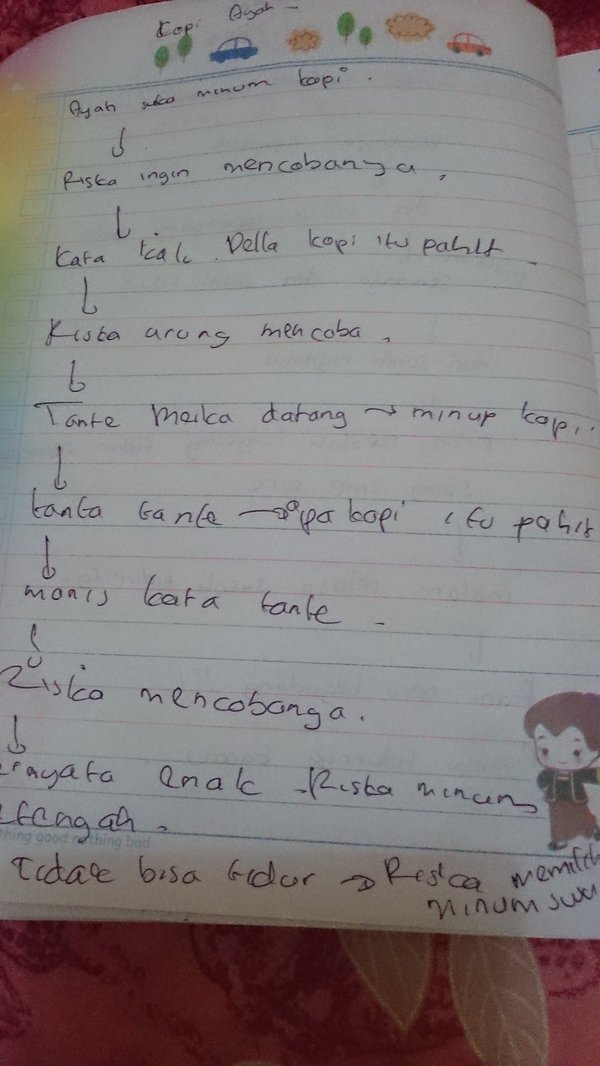 Kopi Ayah -
Ayah suka minum kopi.
Riska ingin mencobanya,
Kata kak Della kopi itu pahit -
Riska urung mencoba,
Tante Meika datang → minup kopi.
tanta tante → apa kopi itu pahit
manis kata tante -
Riska mencobanga.
enak - Riska minum
Tidak bisa tidur → Riska memilih
minum susu